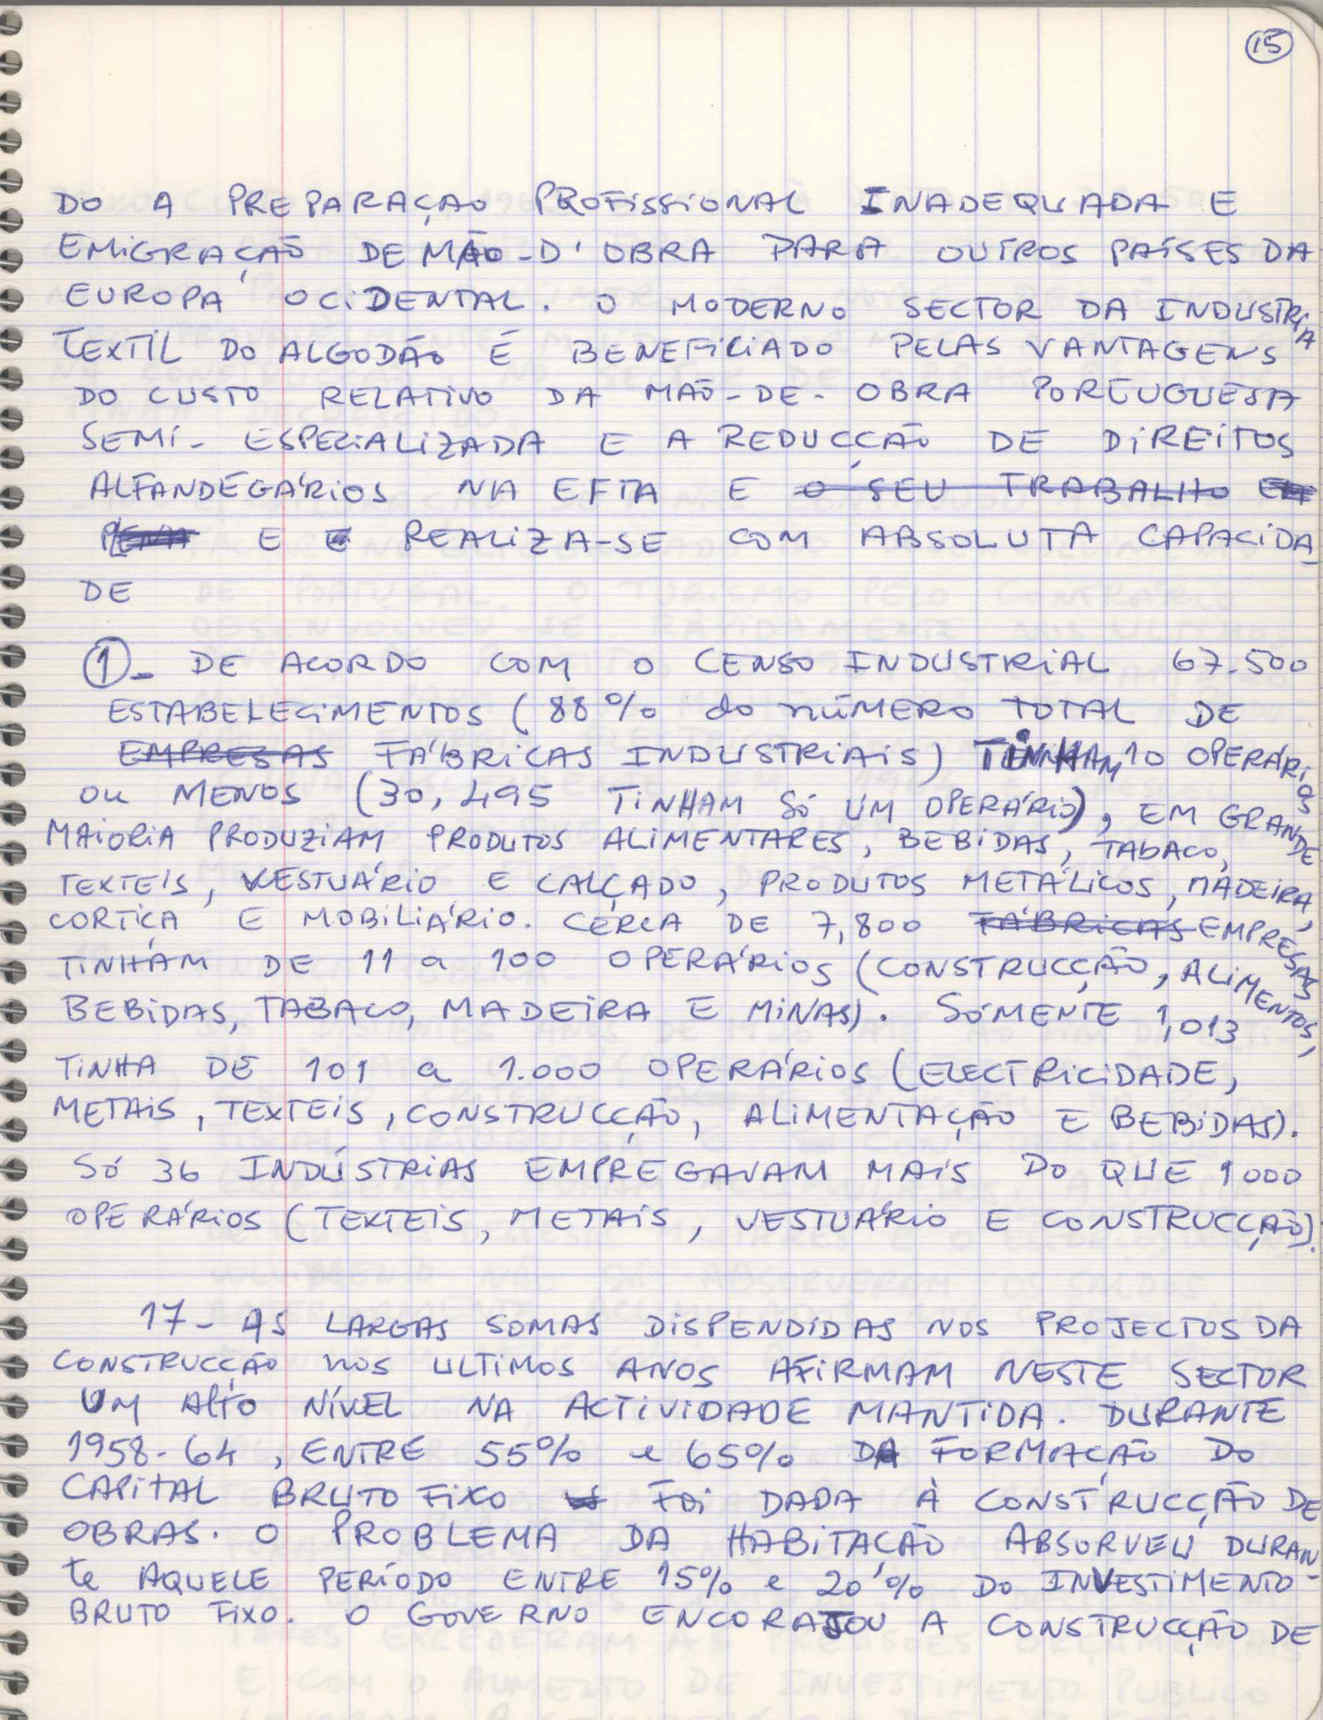 15
DO A PREPARAÇAO PROFISSIONAL INADEQUADA E
EMIGRAÇÃO DE MÃO-D'OBRA PARA OUTROS PAÍSES DA
EUROPA OCIDENTAL. O MODERNO SECTOR DA INDUSTRIA
TEXTIL DO ALGODÃO É BENEFICIADO PELAS VANTAGENS
DO CUSTO RELATIVO DA MÃO-DE-OBRA PORTUGUESA
SEMI-ESPECIALIZADA E A REDUCÇÃO DE DIREITOS
ALFANDEGÁRIOS NA EFTA E O SEU TRABALHO
E E REALIZA-SE COM ABSOLUTA CAPACIDA-
DE
1- DE ACORDO COM O CENSO INDUSTRIAL 67.500
ESTABELECIMENTOS (88% do NÚMERO TOTAL DE
EMPRESAS FÁBRICAS INDUSTRIAIS) TINHAM 10 OPERÁRIOS
OU MENOS (30,495 TINHAM SÓ UM OPERÁRIO), EM GRANDE
MAIORIA PRODUZIAM PRODUTOS ALIMENTARES, BEBIDAS, TABACO,
TEXTEIS, VESTUÁRIO E CALÇADO, PRODUTOS METÁLICOS, MADEIRA,
CORTIÇA E MOBILIÁRIO. CERCA DE 7,800 FÁBRICAS EMPRESAS
TINHAM DE 11 a 100 OPERÁRIOS (CONSTRUCÇÃO, ALIMENTOS,
BEBIDAS, TABACO, MADEIRA E MINAS). SÓMENTE 1,013
TINHA DE 101 a 1.000 OPERÁRIOS (ELECTRICIDADE,
METAIS, TEXTEIS, CONSTRUCÇÃO, ALIMENTAÇÃO E BEBIDAS).
SÓ 36 INDÚSTRIAS EMPREGAVAM MAIS DO QUE 1000
OPERÁRIOS (TEXTEIS, METAIS, VESTUÁRIO E CONSTRUCÇÃO).
17- AS LARGAS SOMAS DISPENDIDAS NOS PROJECTOS DA
CONSTRUCÇÃO NOS ULTIMOS ANOS AFIRMAM NESTE SECTOR
UM ALTO NÍVEL NA ACTIVIDADE MANTIDA. DURANTE
1958-64, ENTRE 55% e 65% DA FORMAÇÃO DO
CAPITAL BRUTO FIXO FOI DADA À CONSTRUCÇÃO DE
OBRAS. O PROBLEMA DA HABITAÇÃO ABSORVEU DURAN-
te AQUELE PERÍODO ENTRE 15% e 20% DO INVESTIMENTO
BRUTO FIXO. O GOVERNO ENCORAJOU A CONSTRUCÇÃO DE